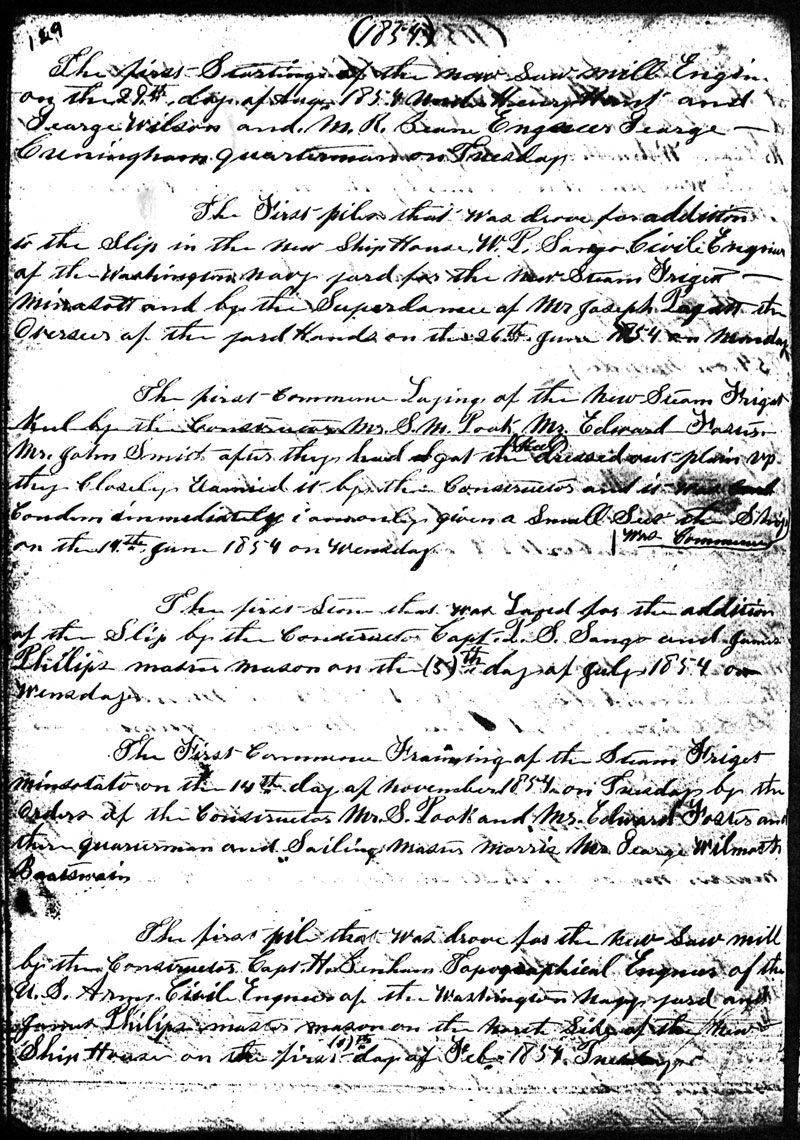 129
(1854)
The first Starting of the new Saw mill Engin
on the 29th day of Aug 1854 Henry Hunt and
George Wilson and M. R. Beam Engneer George —
Cuningham quarterman on Tuesday
The First piles that was drove for addition
to the Slip in the new Ship House W. P. Sango Civil Engneer
of the Washington navy yard for the new Steam Friget —
Minasott and by the Superdance of Mr Joseph Pagett the
Overseer of the yard Hands on the 26th June 1854 on Monday
The first Commence Laying of the new Steam Friget
Keel by the Constructor Mr. S. M. Pook Mr. Edward Foster.
Mr. John Smith after they had got the Keel dressed out plain up
they Closely Examied it by the Constructor and it was
Condem immediately i am only given a Small the Ship
was Commence
on the 14th June 1854 on Wensday
The first Stone that was Layed for the addition
of the Slip by the Constructor Capt. P. S. Sango and James
Philips master mason on the (5)th day of July 1854 on
Wensday.
The First Commence Framing of the Steam Friget
Minsotato on the 14th day of november 1854 on Tuesday by the
Orders of the Constructor Mr. S. Pook and Mr. Edward Foster and
there quarterman and Sailing Master Morris Mr George Wilmoth
Boatswain
The first pile that was drove for the new Saw mill
by the Constructor Capt. H. Benham Topographical Engneer of the
U. S. Army Civil Engneer of the Washington navy yard and
James Philips master mason on the north Side of the new
Ship House on the first day of Feb. 1854.